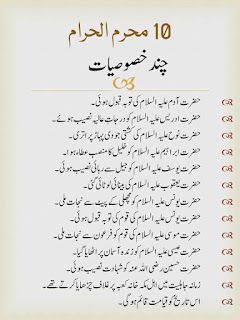 10 محرم الحرام
چند خصوصیات
حضرت آدم علیہ السلام کی توبہ قبول ہوئی۔
حضرت ادریس علیہ السلام کو درجاتِ عالیہ نصیب ہوئے۔
حضرت نوح علیہ السلام کی کشتی جودی پہاڑ پر اتری۔
حضرت ابراہیم علیہ السلام کو خلیل کا منصب عطا ہوا۔
حضرت یوسف علیہ السلام کو جیل سے رہائی نصیب ہوئی۔
حضرت یعقوب علیہ السلام کی بینائی لوٹائی گئی۔
حضرت یونس علیہ السلام کو مچھلی کے پیٹ سے نجات ملی۔
حضرت یونس علیہ السلام کی قوم کی توبہ قبول ہوئی۔
حضرت موسی علیہ السلام کی قوم کو فرعون سے نجات ملی۔
حضرت عیسی علیہ السلام کو زندہ آسمان پر اٹھایا گیا۔
حضرت حسین رضی اللہ عنہ کو شہادت نصیب ہوئی۔
زمانہ جاہلیت میں اہل مکہ خانہ کعبہ پر غلاف چڑھایا کرتے تھے۔
اس تاریخ کو قیامت قائم ہوگی۔